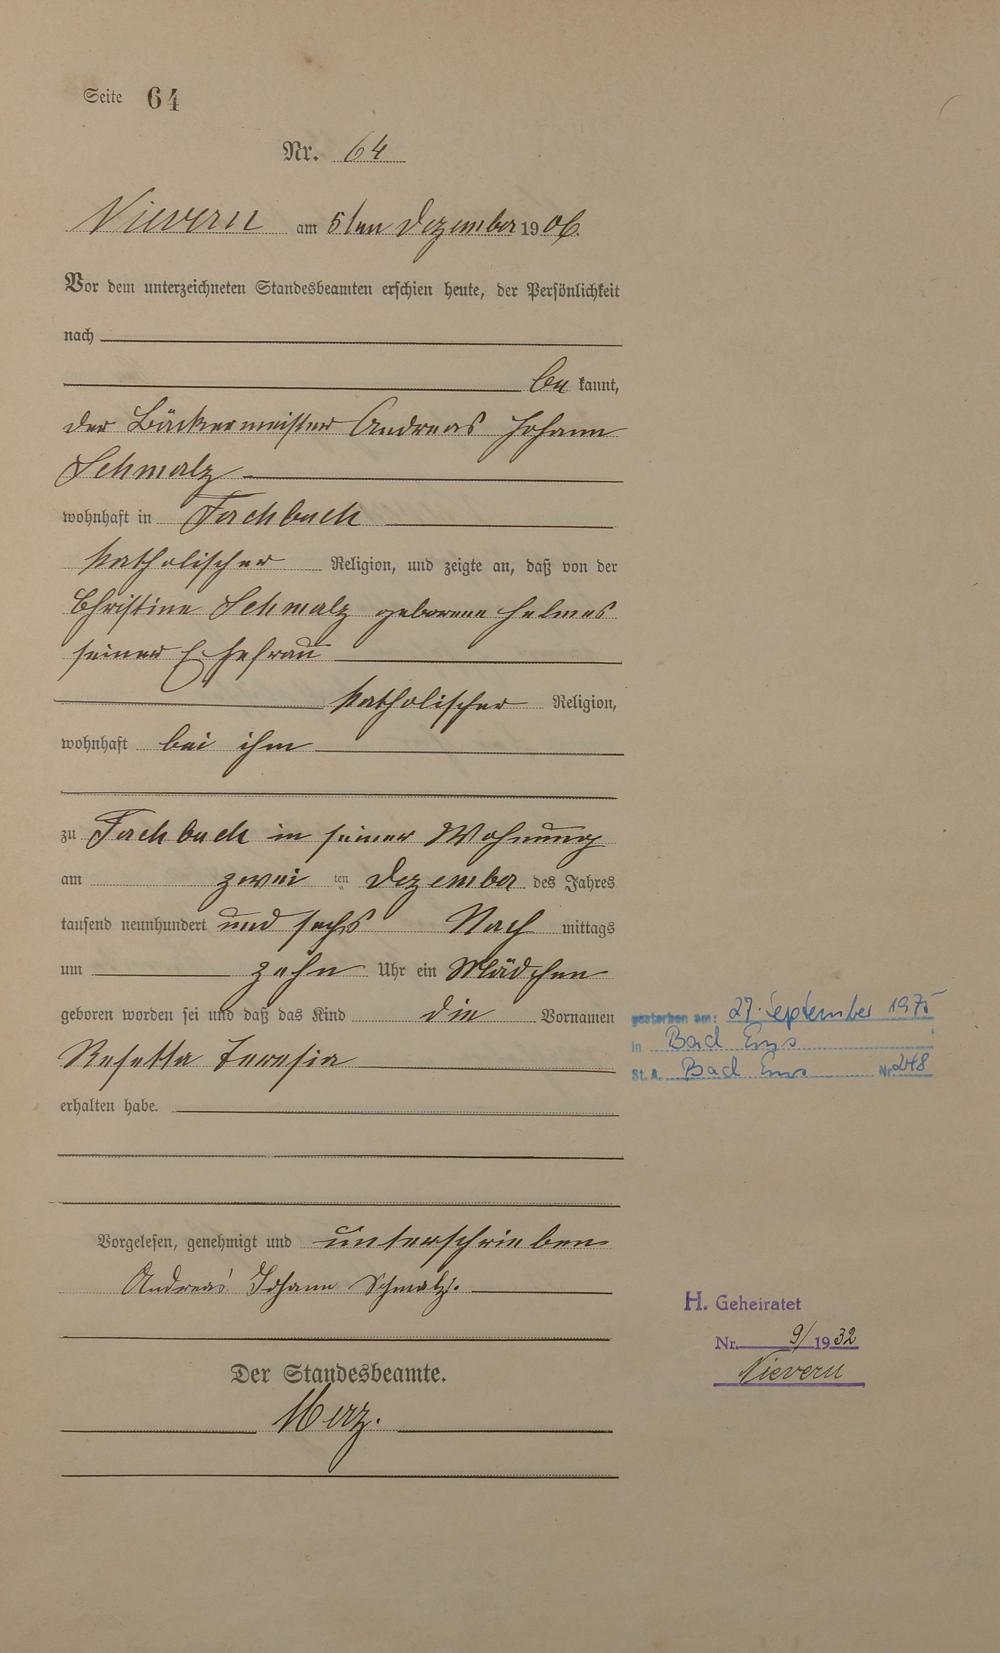 Seite 64
Nr. 64
Nievern am 5ten Dezember 1906.
Vor dem unterzeichneten Standesbeamten erschien heute, der Persönlichkeit
nach
be kannt,
der Bäckermeister Andreas Johann
Schmalz
wohnhaft in Fachbach
katholischer Religion, und zeigte an, daß von der
Christine Schmalz geborene Helmes
seiner Ehefrau
katholischer Religion,
wohnhaft bei ihm
zu Fachbach in seiner Wohnung
am zwei ten Dezember des Jahres
tausend neunhundert und sechs Nach mittags
um zehn Uhr ein Mädchen
geboren worden sei und daß das Kind die Vornamen
Rosetta Teresia
erhalten habe.
Vorgelesen, genehmigt und unterschrieben
Andreas Johann Schmalz.
Der Standesbeamte.
Merz.
gestorben am: 27. September 1975
in Bad Ems
St. A. Bad Ems Nr. 248
H. Geheiratet
Nr. 9/1932
Nievern